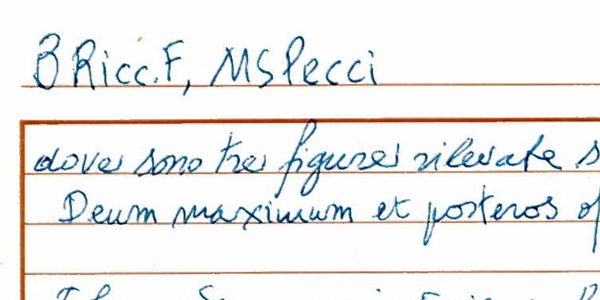 B Ricc. F, MS Pecci
dove sono tre figure rilevate s
Deum maximum et posteros of